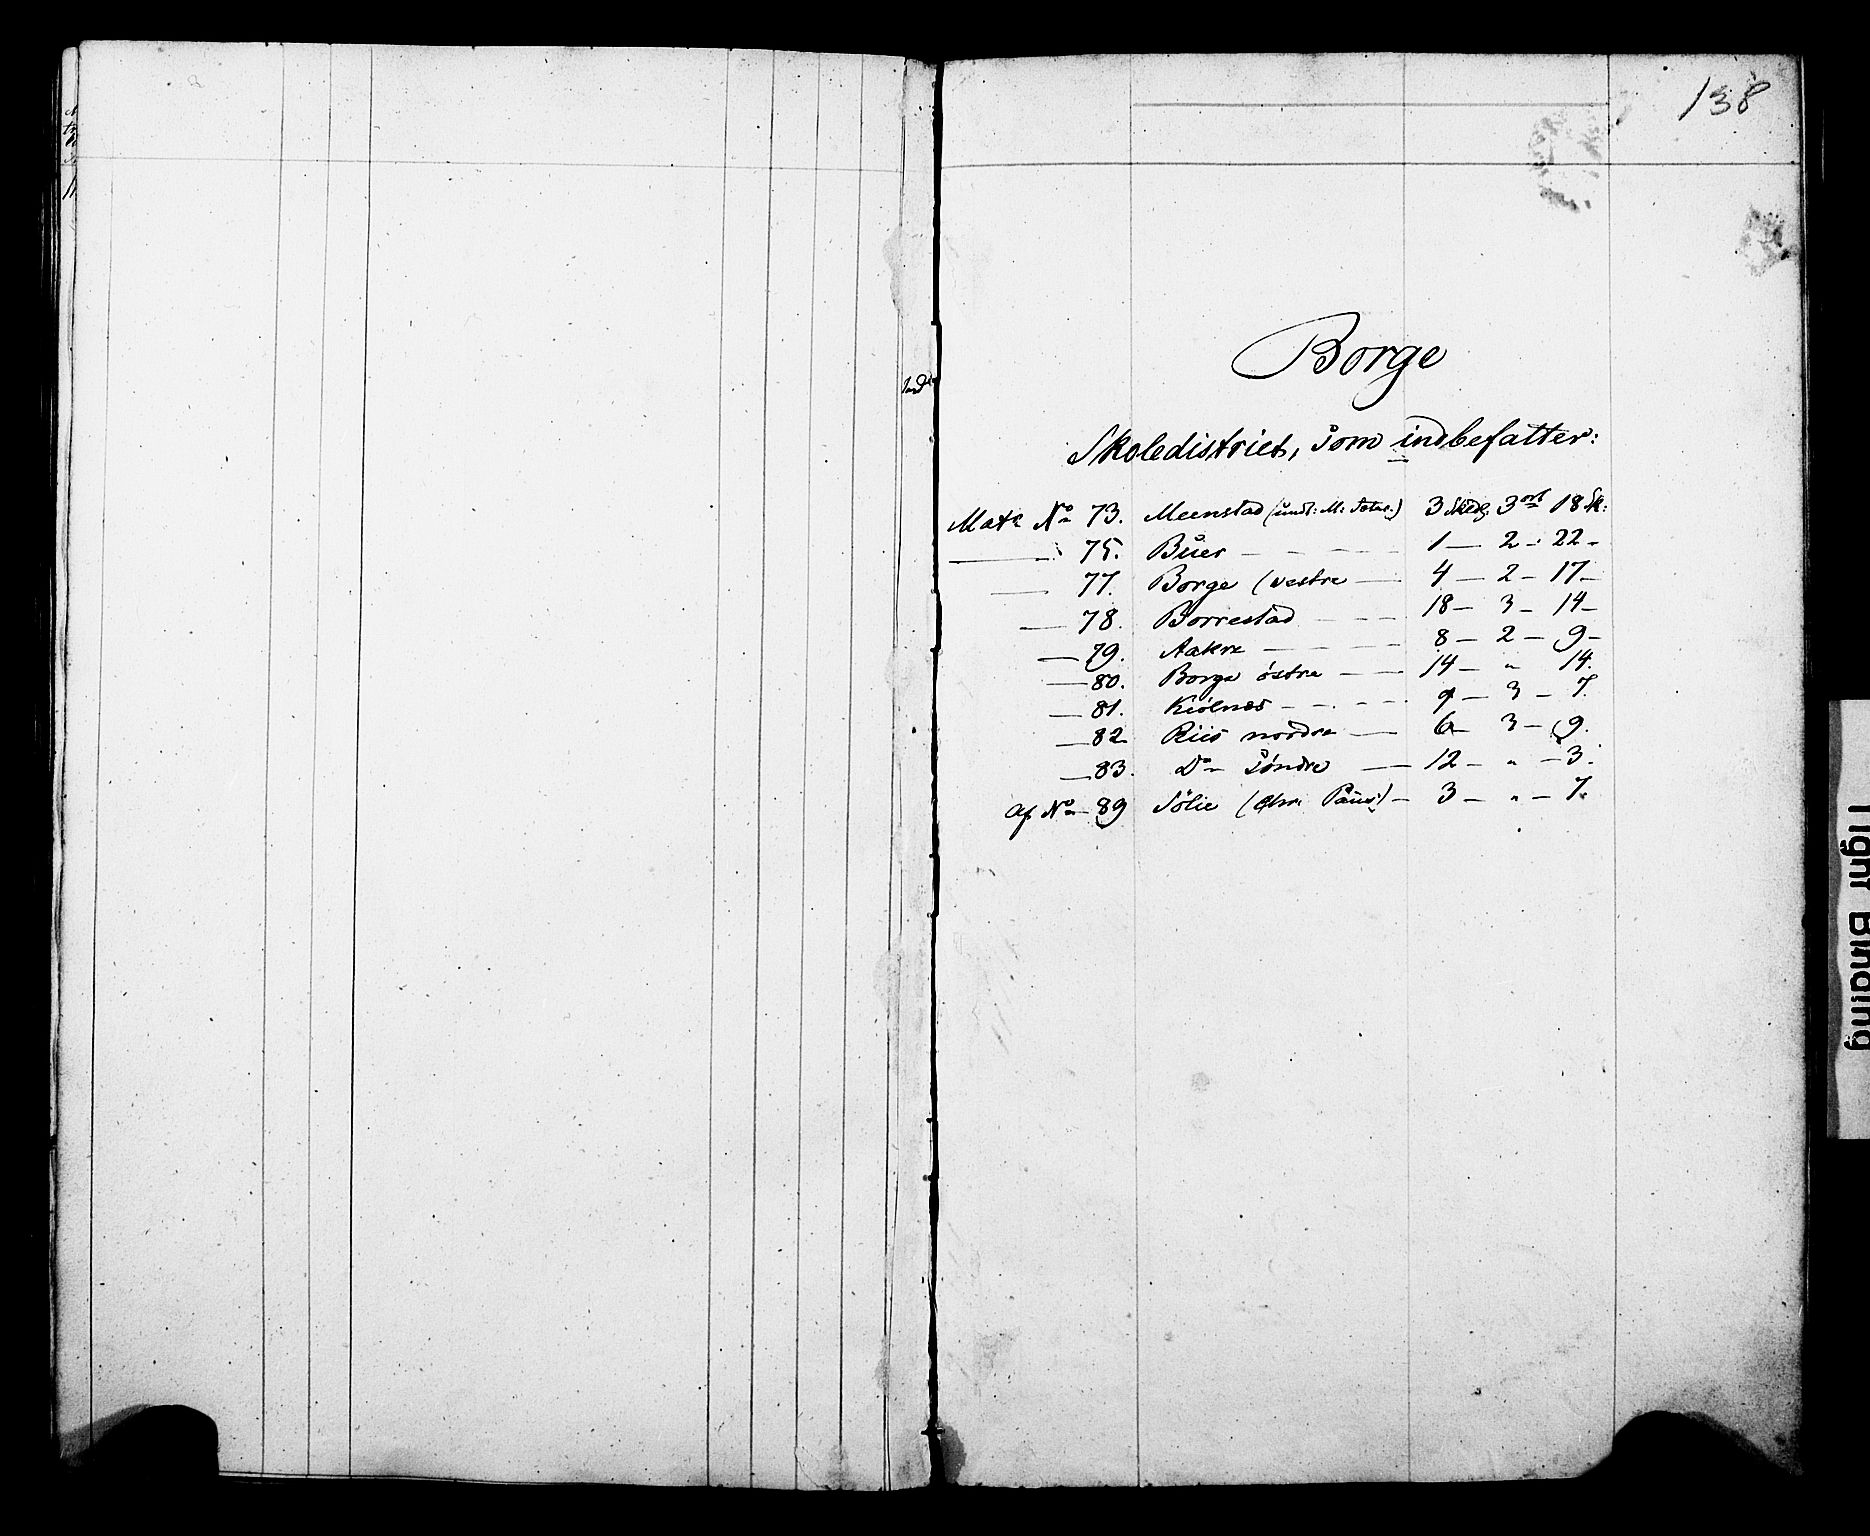 138
Borge
Skoledistrict, som indbefatter:
Matr No 73. Meenstad (undt: M: ) 3 Skdlr. 3 ort 18 Sk:
— 75. Buer — 1 — 2 — 22 —
— 77. Borge (vestre — 4 — 2 — 17 —
— 78. Borrestad — 18 — 3 — 14 —
— 79. Aakre — 8 — 2 — 9 —
— 80. Borge østre — 14 — " 14.
— 81. Kiølnes — 9 — 3 — 7.
— 82 Riis nordre — 6 — 3 — 9.
— 83. Do søndre — 12 — " — 3.
Af No 89 Sølie (Chr: Paus:) — 3 — " — 7.
Tight Binding